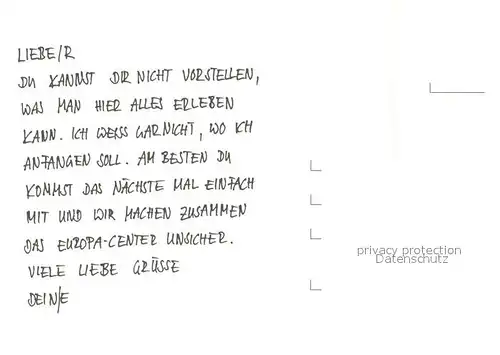 LIEBE/R
DU KANNST DIR NICHT VORSTELLEN,
WAS MAN HIER ALLES ERLEBEN
KANN. ICH WEISS GARNICHT, WO ICH
ANFANGEN SOLL. AM BESTEN DU
KOMMST DAS NÄCHSTE MAL EINFACH
MIT UND WIR MACHEN ZUSAMMEN
DAS EUROPA-CENTER UNSICHER.
VIELE LIEBE GRÜSSE
DEIN/E
privacy protection
Datenschutz